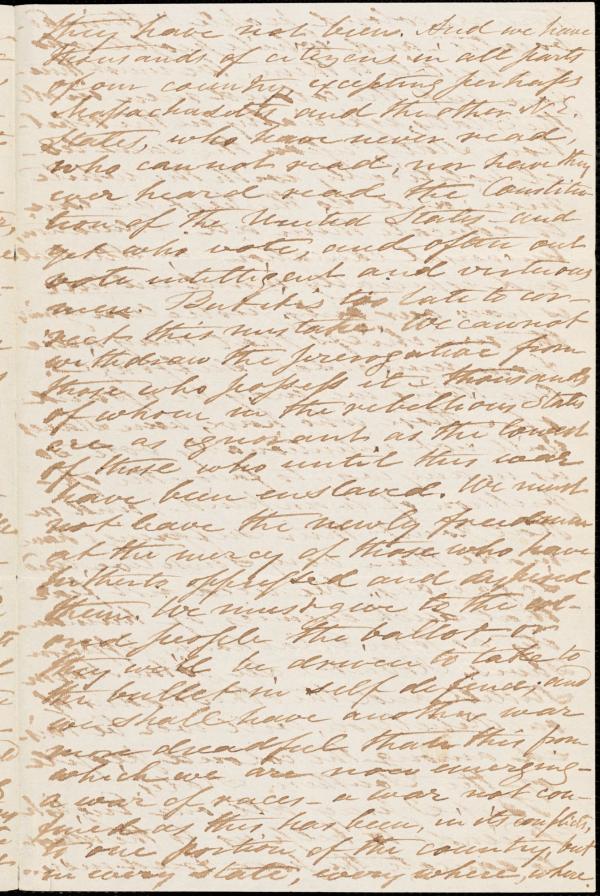 they have not been. And we have
thousands of citizens in all parts
of our country, excepting perhaps
Massachusetts and the other N. E.
States, who have never read,
who cannot read, nor have they
ever heard read the Constitu-
tion of the United States and
yet who vote, and often out
vote intelligent and virtuous
men. But it is too late to cor-
rect this mistake. We cannot
withdraw the prerogative from
those who possess it - thousands
of whom in the rebellious States
are as ignorant as the lowest
of those who until this war
have been enslaved. We must
not leave the newly freedmen
at the mercy of those who have
hitherto oppressed and despised
them. We must give to the col-
ored people the ballot or
they will be driven to take to
the bullet in self defence; and
we shall have another war
more dreadful than this from
which we are now emerging -
a war of races - a war not con-
fined as this has been, in its conflicts,
to one portion of the country, but
in every state, every where, where